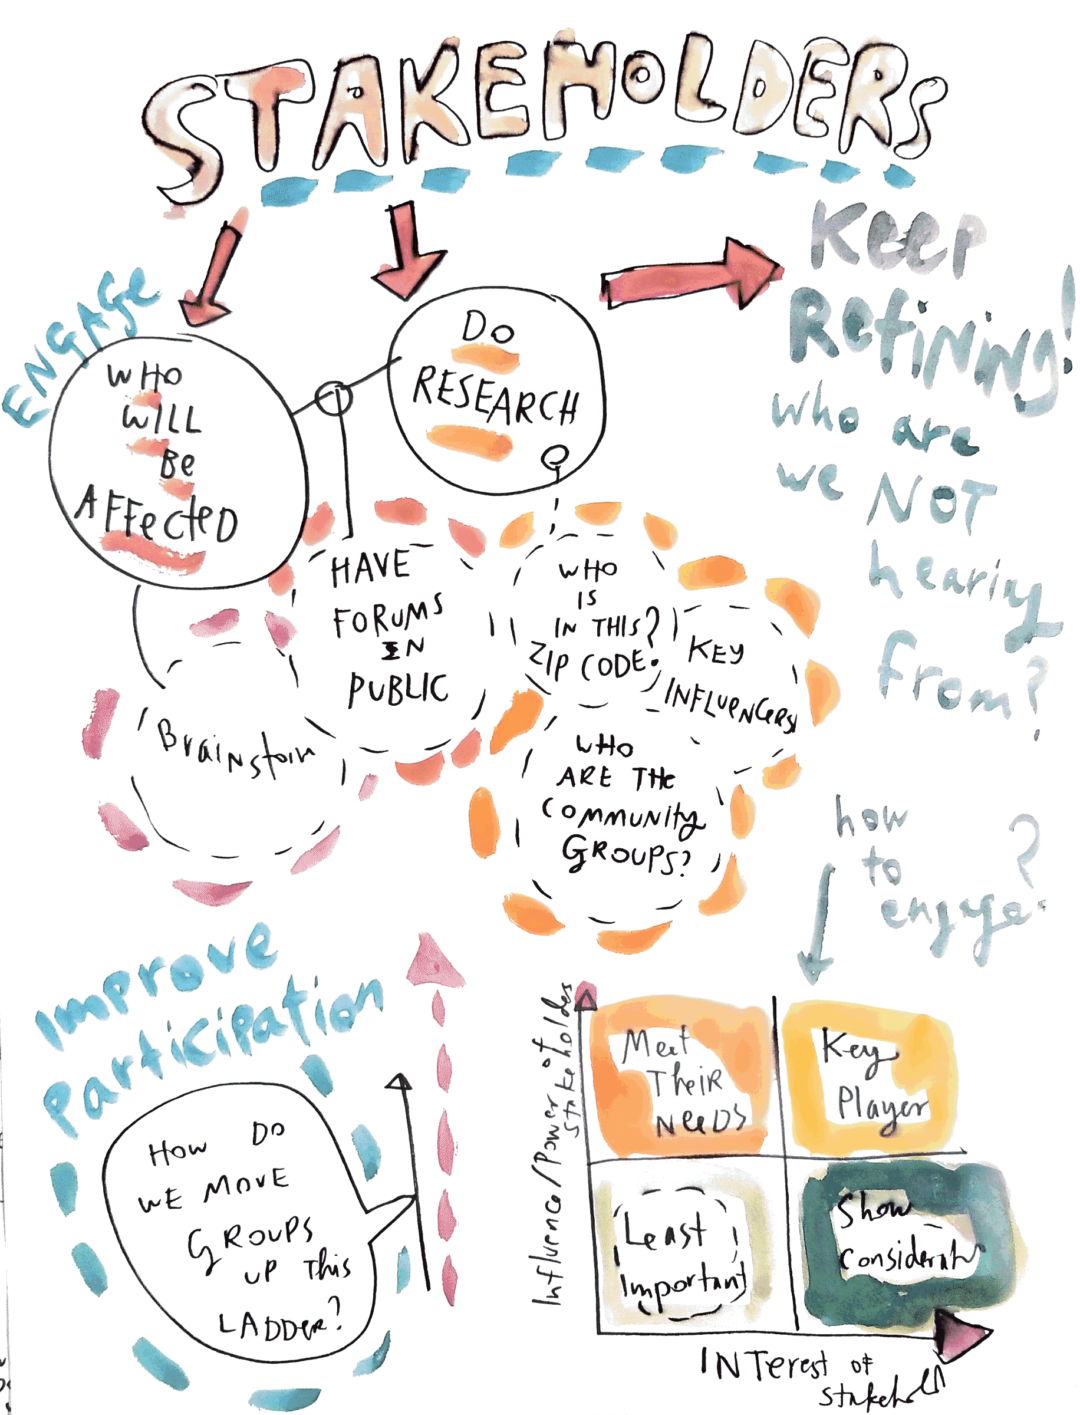 STAKEHOLDERS
ENGAGE
WHO
WILL
BE
AFFECTED
DO
RESEARCH
KEEP
REfiNiNg!
who are
we NOT
hearing
from?
HAVE
FORUMS
IN
PUBLIC
Brainstorm
WHO
IS
IN THIS?
ZIP CODE.
KEY
INFLUENCERS
WHO
ARE THE
COMMUNITY
GROUPS?
how
to
engage?
IMPROVE
PARTICIPATION
HOW DO
WE MOVE
GROUPS
UP THIS
LADDER?
Influence/Power of
stakeholder
Meet
THEIR
NEEDS
Key
Player
Least
Important
Show
Considerat
INTerest of